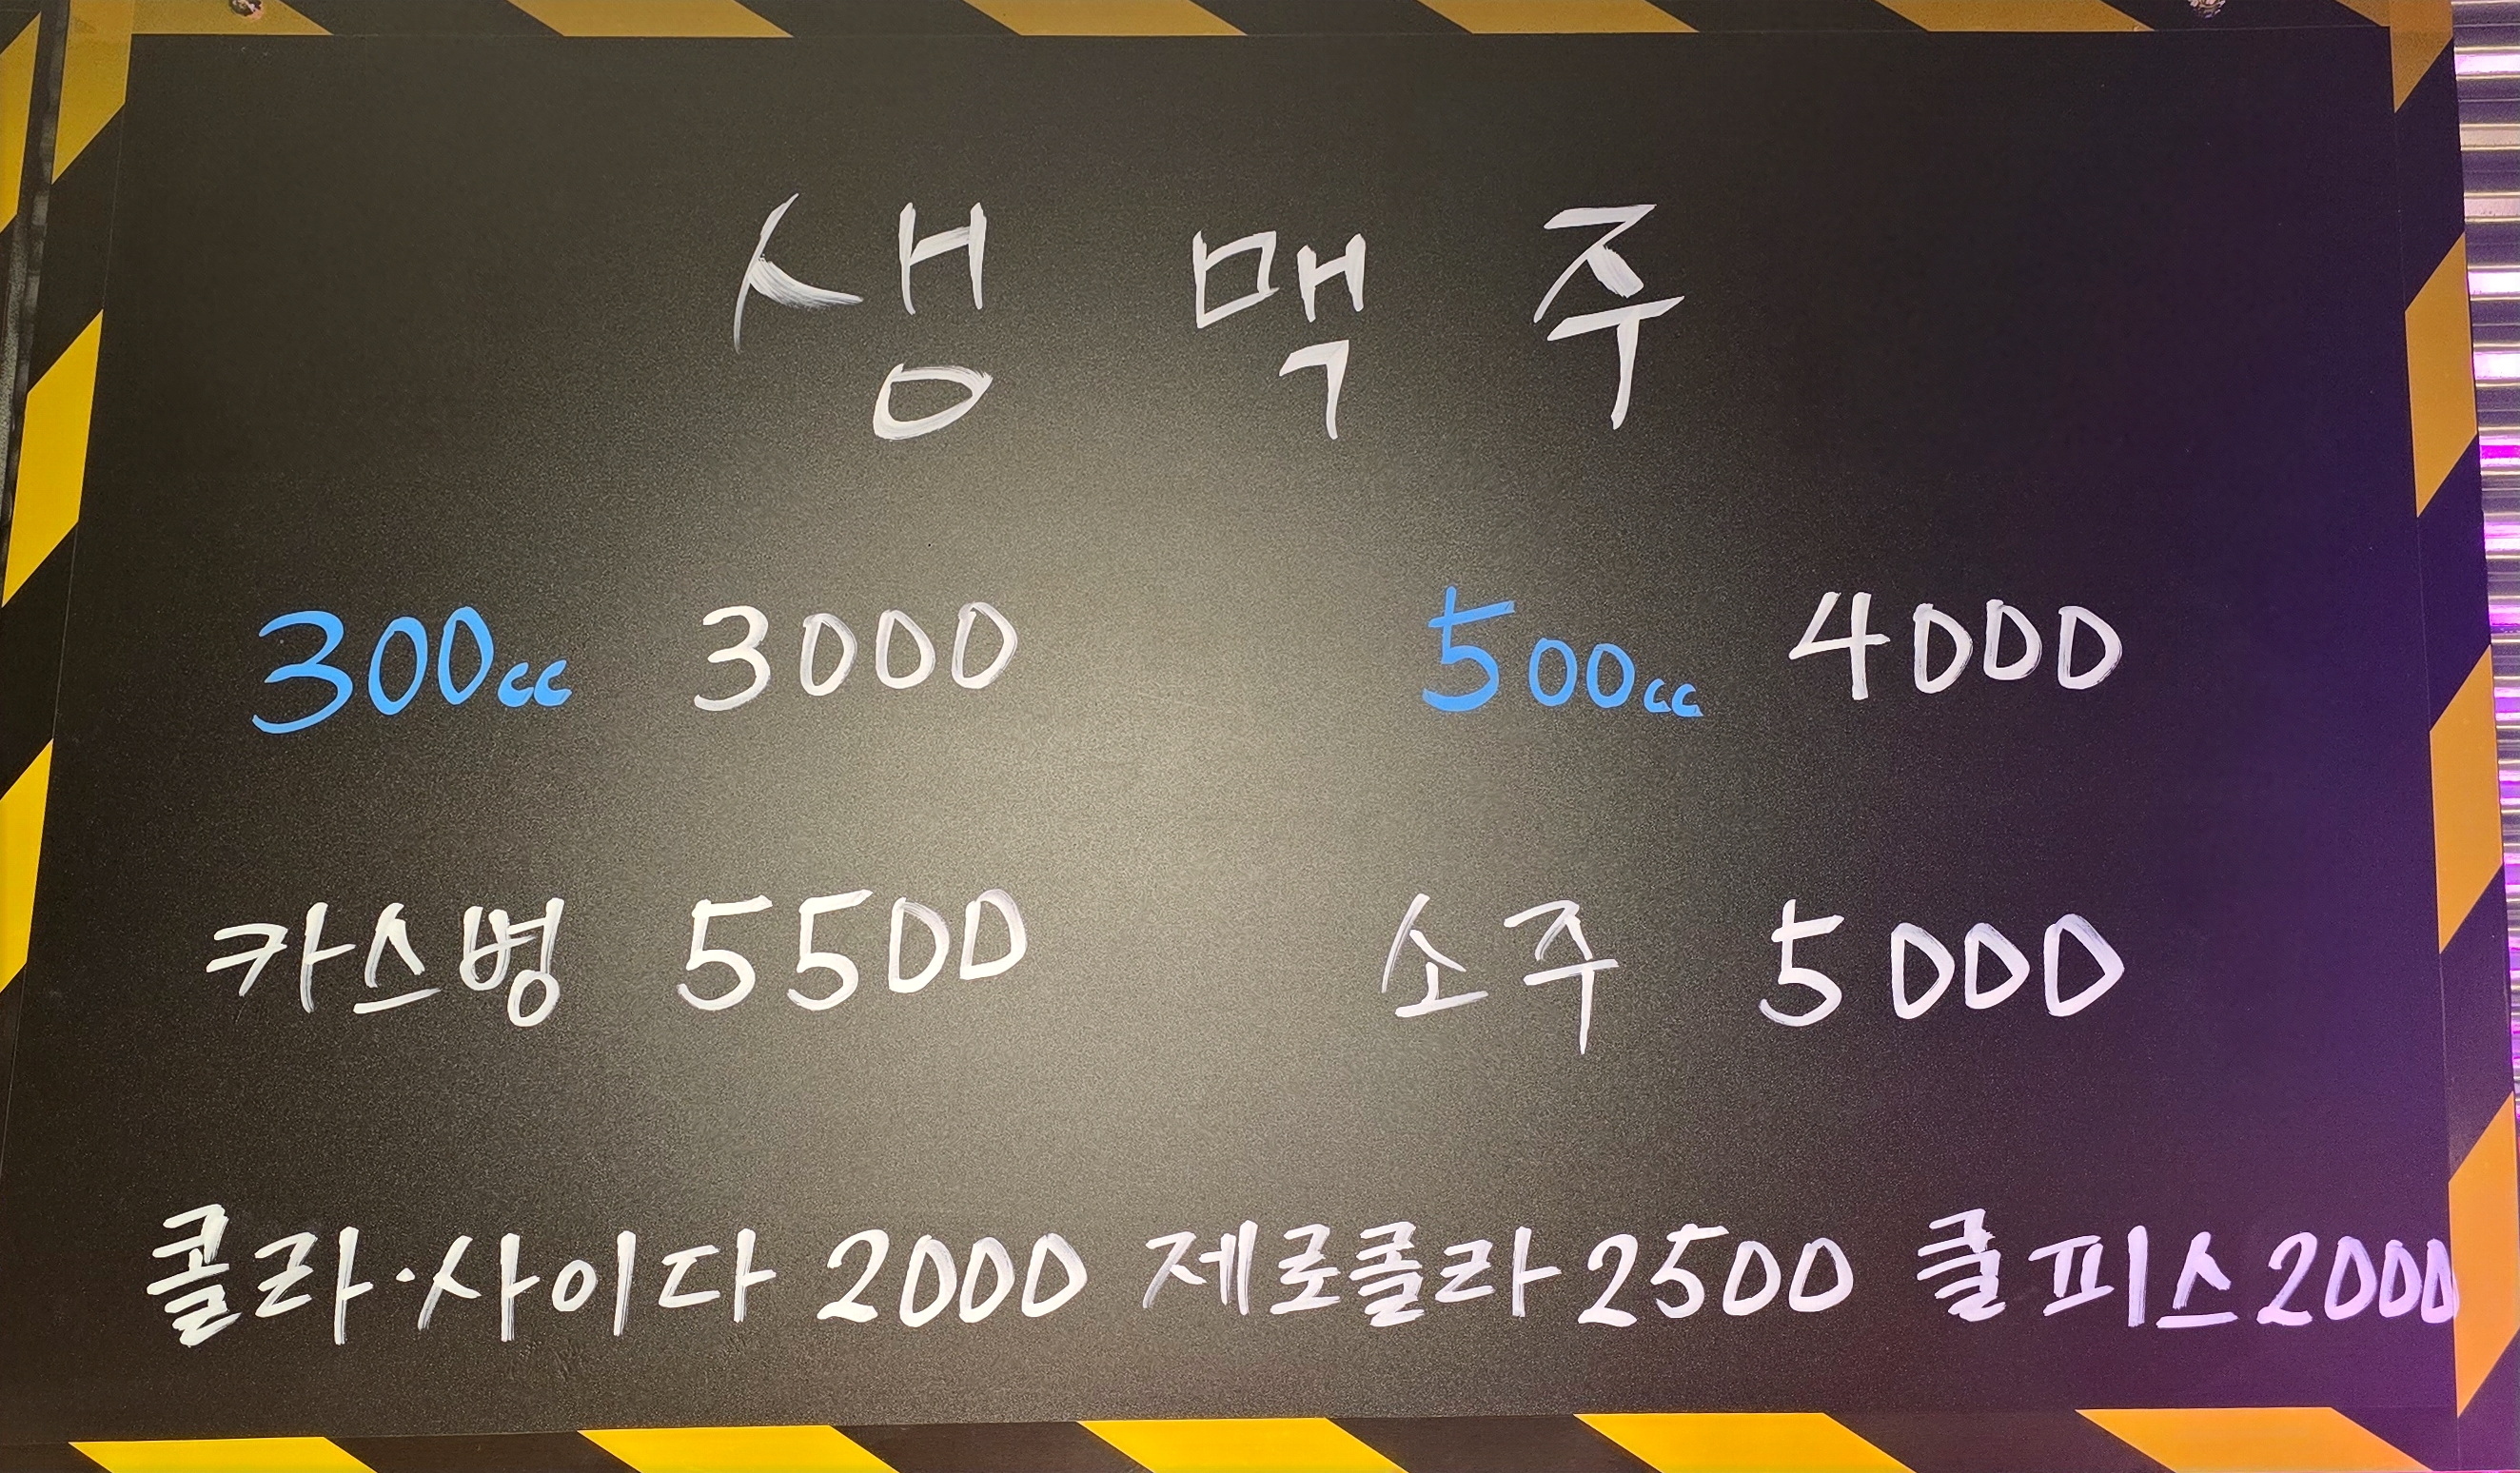 생맥주
300cc 3000 500cc 4000
카스병 5500 소주 5000
콜라·사이다 2000 제로콜라 2500 쿨피스 2000